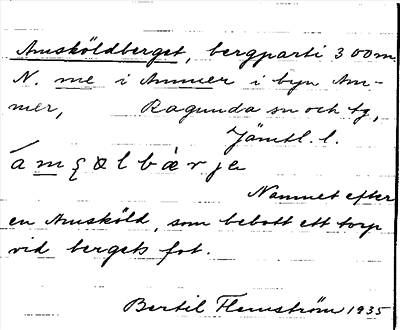 Amsköldberget, bergparti 300m.
N. me i Ammer i byn Am-
mer, Ragunda sn och tg,
Jämtl. l.
Namnet efter
en Amsköld, som bebott ett torp
vid bergets fot.
Bertil Flemström 1935